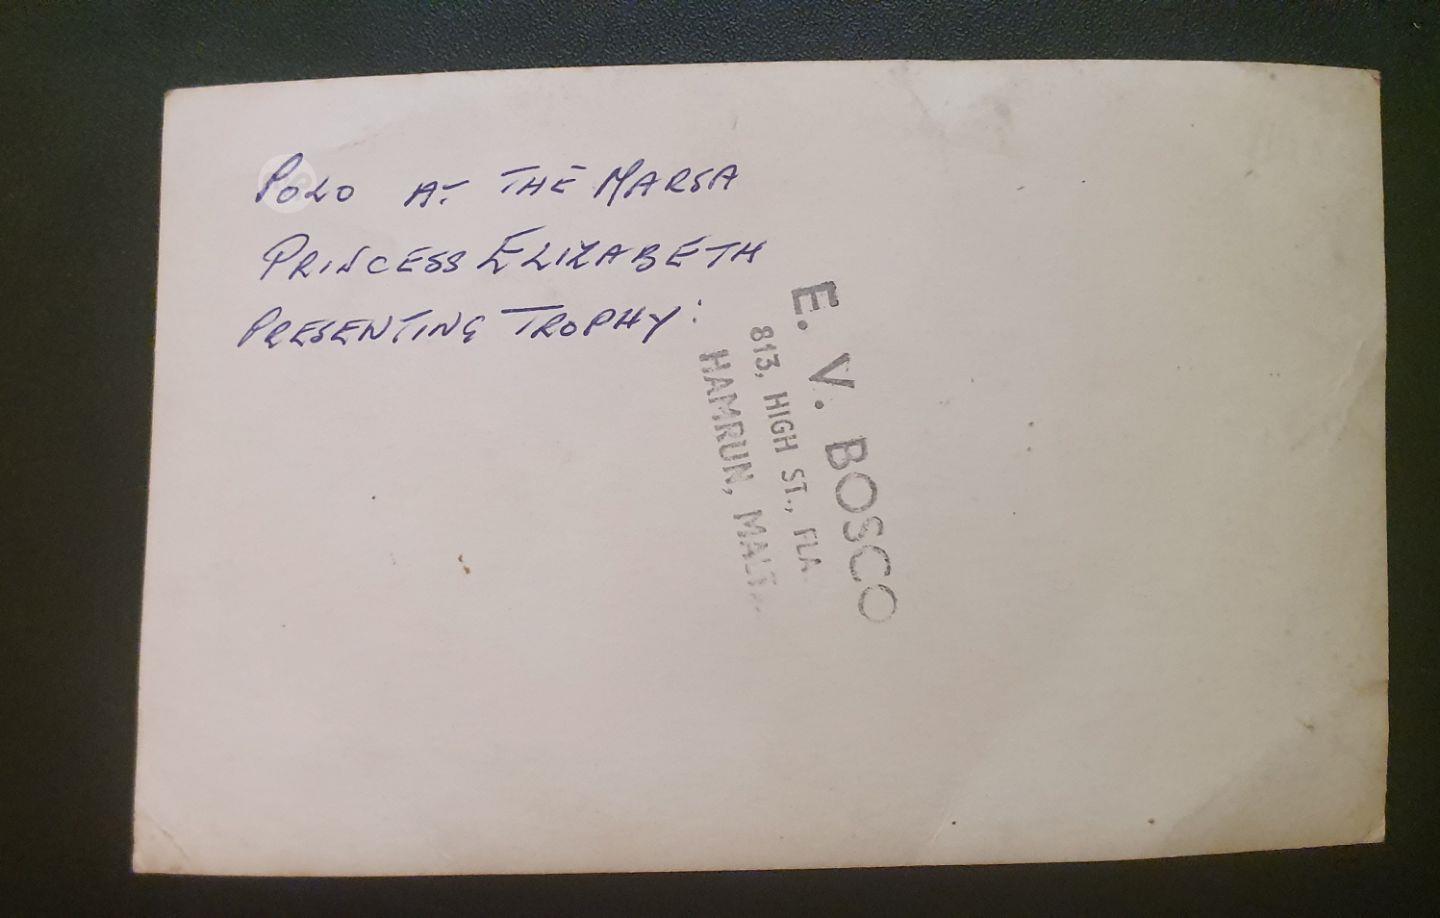 POLO AT THE MARSA
PRINCESS ELIZABETH
PRESENTING TROPHY:
E. V. BOSCO
813, HIGH ST., FLA
HAMRUN, MALTA